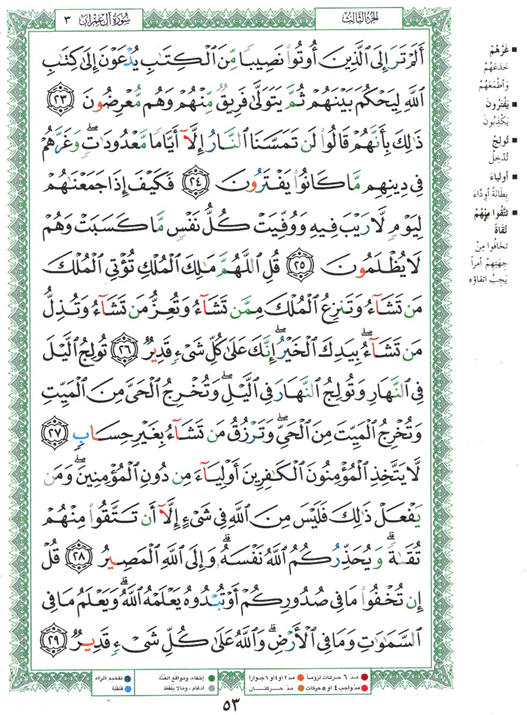 سُورَةُ آلِ عِمْرَانَ ٣
الجزء الثالث
أَلَمْ تَرَ إِلَى ٱلَّذِينَ أُوتُوا۟ نَصِيبًا مِّنَ ٱلْكِتَٰبِ يُدْعَوْنَ إِلَىٰ كِتَٰبِ
ٱللَّهِ لِيَحْكُمَ بَيْنَهُمْ ثُمَّ يَتَوَلَّىٰ فَرِيقٌ مِّنْهُمْ وَهُم مُّعْرِضُونَ ٢٣
ذَٰلِكَ بِأَنَّهُمْ قَالُوا۟ لَن تَمَسَّنَا ٱلنَّارُ إِلَّآ أَيَّامًا مَّعْدُودَٰتٍ ۖ وَغَرَّهُمْ
فِى دِينِهِم مَّا كَانُوا۟ يَفْتَرُونَ ٢٤ فَكَيْفَ إِذَا جَمَعْنَٰهُمْ
لِيَوْمٍ لَّا رَيْبَ فِيهِ وَوُفِّيَتْ كُلُّ نَفْسٍ مَّا كَسَبَتْ وَهُمْ
لَا يُظْلَمُونَ ٢٥ قُلِ ٱللَّهُمَّ مَٰلِكَ ٱلْمُلْكِ تُؤْتِى ٱلْمُلْكَ
مَن تَشَآءُ وَتَنزِعُ ٱلْمُلْكَ مِمَّن تَشَآءُ وَتُعِزُّ مَن تَشَآءُ وَتُذِلُّ
مَن تَشَآءُ ۖ بِيَدِكَ ٱلْخَيْرُ ۖ إِنَّكَ عَلَىٰ كُلِّ شَىْءٍ قَدِيرٌ ٢٦ تُولِجُ ٱلَّيْلَ
فِى ٱلنَّهَارِ وَتُولِجُ ٱلنَّهَارَ فِى ٱلَّيْلِ ۖ وَتُخْرِجُ ٱلْحَىَّ مِنَ ٱلْمَيِّتِ
وَتُخْرِجُ ٱلْمَيِّتَ مِنَ ٱلْحَىِّ ۖ وَتَرْزُقُ مَن تَشَآءُ بِغَيْرِ حِسَابٍ ٢٧
لَّا يَتَّخِذِ ٱلْمُؤْمِنُونَ ٱلْكَٰفِرِينَ أَوْلِيَآءَ مِن دُونِ ٱلْمُؤْمِنِينَ ۖ وَمَن
يَفْعَلْ ذَٰلِكَ فَلَيْسَ مِنَ ٱللَّهِ فِى شَىْءٍ إِلَّآ أَن تَتَّقُوا۟ مِنْهُمْ
تُقَىٰةً ۗ وَيُحَذِّرُكُمُ ٱللَّهُ نَفْسَهُۥ ۗ وَإِلَى ٱللَّهِ ٱلْمَصِيرُ ٢٨ قُلْ
إِن تُخْفُوا۟ مَا فِى صُدُورِكُمْ أَوْ تُبْدُوهُ يَعْلَمْهُ ٱللَّهُ ۗ وَيَعْلَمُ مَا فِى
ٱلسَّمَٰوَٰتِ وَمَا فِى ٱلْأَرْضِ ۗ وَٱللَّهُ عَلَىٰ كُلِّ شَىْءٍ قَدِيرٌ ٢٩
■ غَرَّهُمْ
خَدَعَهُمْ
وَأَطْمَعَهُمْ
■ يَفْتَرُونَ
يَكْذِبُونَ
■ تُولِجُ
تُدْخِلُ
■ أولياءَ
بِطَانَةً أَوِدَّاءَ
■ تَتَّقُوا مِنْهُمْ
تُقَاةً
تَخَافُوا مِنْ
جِهَتِهِمْ أمراً
يَجِبُ اتقاؤه
مدّ ٦ حركات لزوماً
مدّ ٢ أو ٤ أو ٦ جوازاً
مدّ واجب ٤ أو ٥ حركات
مدّ حركتان
إخفاء، ومواقع الغُنَّة
ادغام، وما لا يُلفظ
تفخيم الراء
قلقلة
٥٣